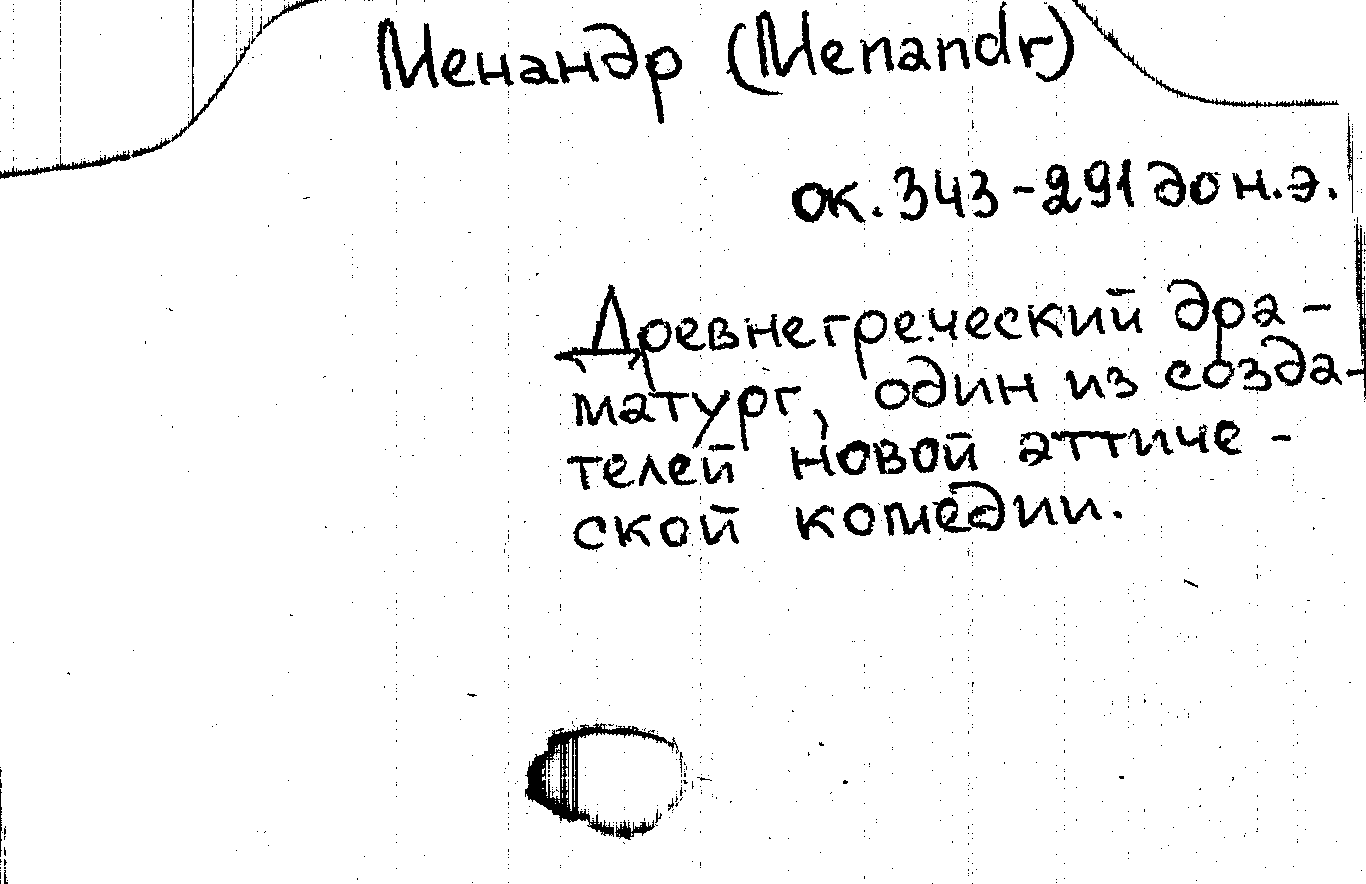 Менандр (Menandr)
ок. 343-291 до н.э.
Древнегреческий дра-
матург, один из созда-
телей новой аттиче-
ской комедии.